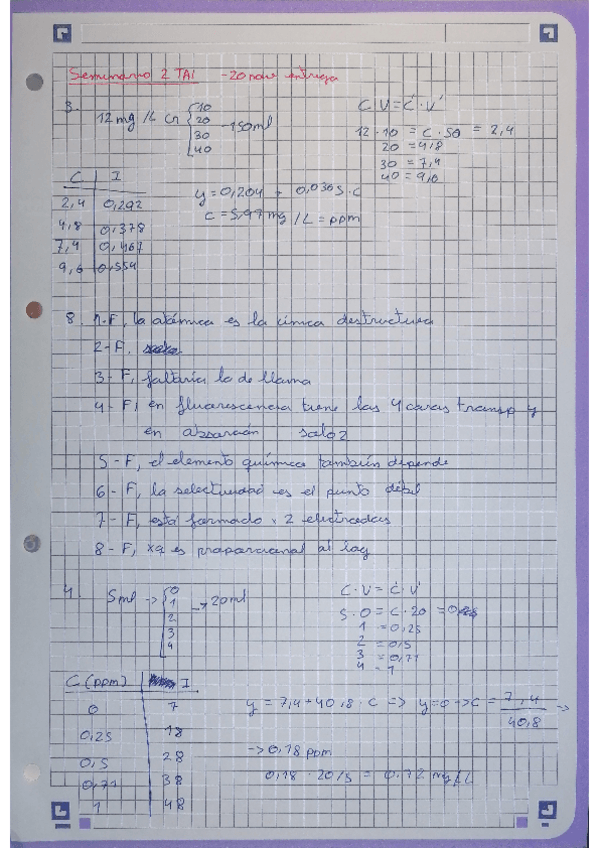 Seminario 2 TAI -20 nov entrega
3. 12 mg /L Cr 10
20
30
40
-150ml
C·V=C'·V'
12·10 = C·50 = 2,4
20 = 4,8
30 = 7,4
40 = 9,6
C I
2,4 0,292
4,8 0,378
7,4 0,467
9,6 0,554
y=0,204 + 0,0365·c
c=5,97 mg /L = ppm
8. 1-F, la atómica es la única destructiva
2-F.
3-F, faltaría la de llama
4-F, en fluorescencia tiene las 4 caras transp y
en absorción solo 2
5-F, el elemento químico también depende
6-F, la selectividad es el punto débil
7-F, está formado x 2 electrodos
8-F, xq es proporcional al log
4. 5ml -> 0
1
2
3
4
-> 20ml
C·V=C'·V'
5·0=C·20 =
1 = 0,25
2 = 0,5
3 = 0,71
4 = 1
C (ppm) I
0 7
0,25 18
0,5 28
0,71 38
1 48
y = 7,4+40,8·C => y=0->C = 7,4/40,8 =>
->0,18 ppm
0,18·20/5 = 0.72 mg/L